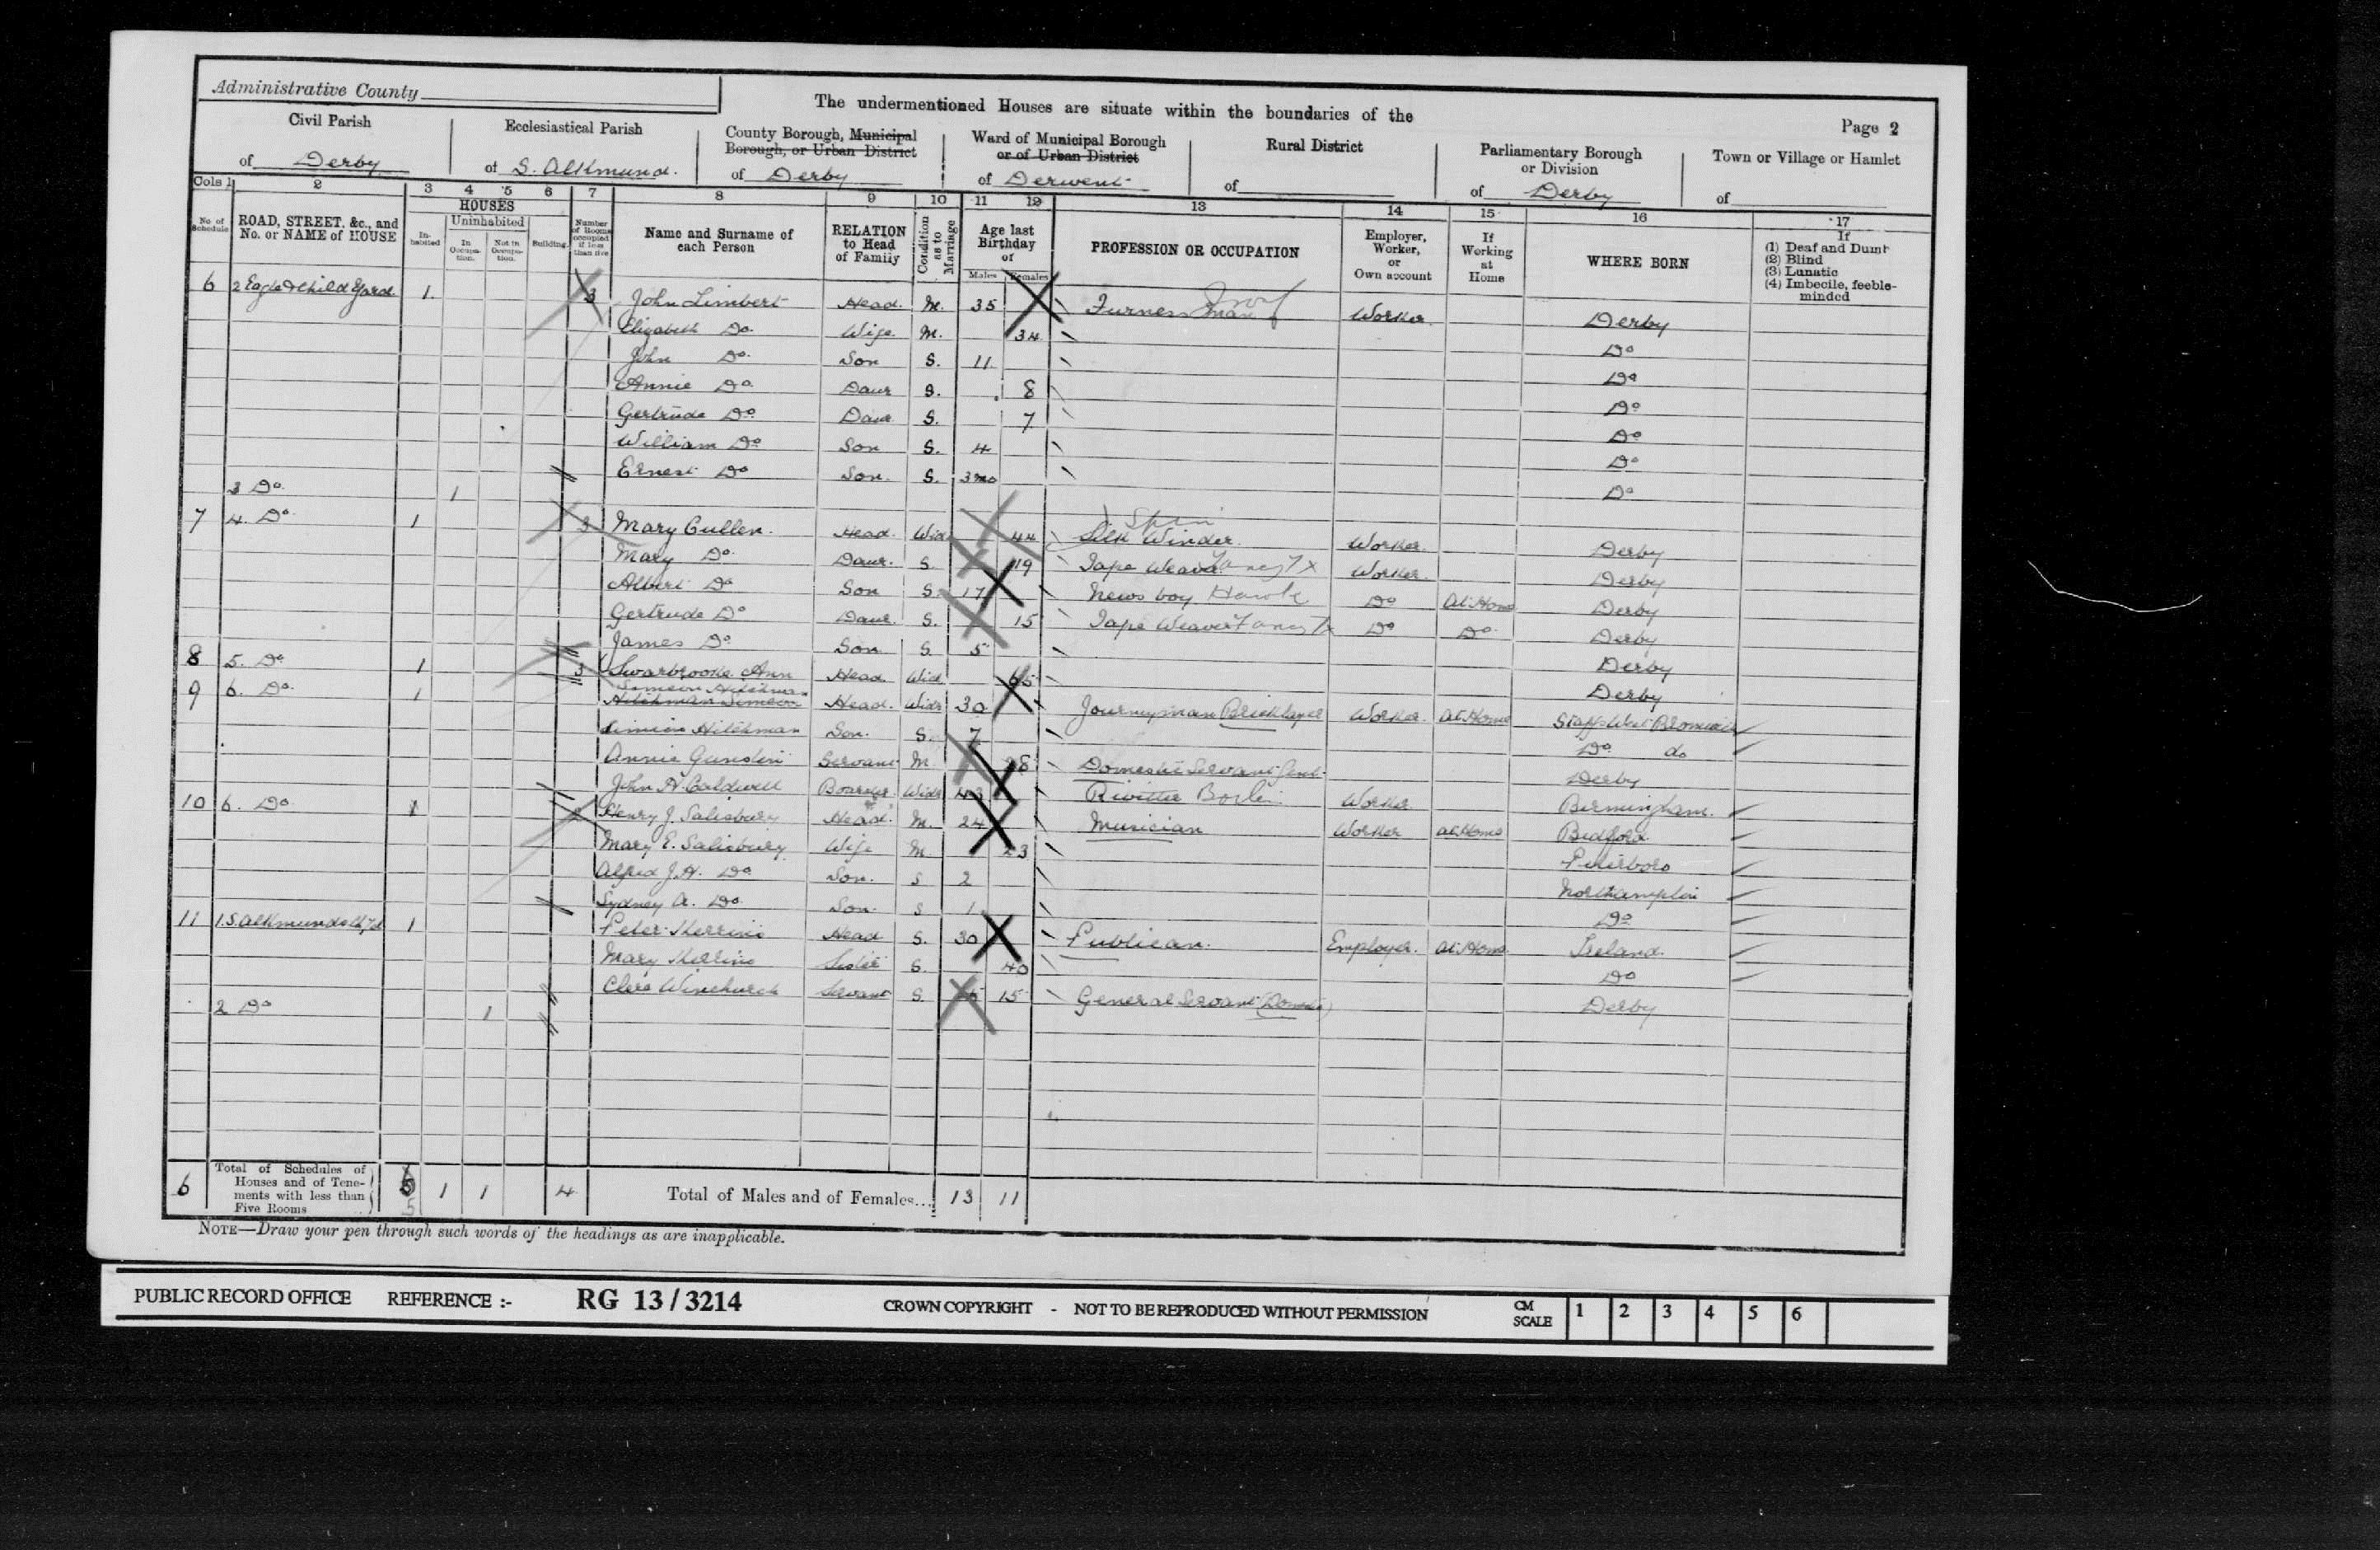 Administrative County
The undermentioned Houses are situate within the boundaries of the
Page 2
Civil Parish
of Derby
Ecclesiastical Parish
of S. Alkmund.
County Borough, Municipal
Borough, or Urban District
of Derby
Ward of Municipal Borough
or of Urban District
of Derwent
Rural District
of
Parliamentary Borough
or Division
of Derby
Town or Village or Hamlet
of
Cols 1 2 3 4 5 6 7 8 9 10 11 12 13 14 15 16 17
No. of Schedule
ROAD, STREET, &c., and
No. or NAME of HOUSE
HOUSES
Inhabited
Uninhabited
In Occupation.
Not in Occupation.
Building.
Number of Rooms occupied if less than five
Name and Surname of
each Person
RELATION
to Head
of Family
Condition as to Marriage
Age last
Birthday
of
Males Females
PROFESSION OR OCCUPATION
Employer,
Worker,
or
Own account
If
Working
at
Home
WHERE BORN
If
(1) Deaf and Dumb
(2) Blind
(3) Lunatic
(4) Imbecile, feeble-
minded
6 2 Eagle & Child Yard. 1. 3 John Limbert Head. M. 35 Furness man Worker. Derby
Elizabeth Do. Wife. M. 34 Do
John Do. Son S. 11. Do
Annie Do Daur S. 8 Do
Gertrude Do Daur S. 7 Do
William Do Son S. 4 Do
Ernest Do Son. S. 3mo Do
3 Do. 1
7 4. Do. 1 3 Mary Cullen. Head. Wid 44 Silk Winder. Worker. Derby
Mary Do. Daur. S. 19 Tape Weaver Worker. Derby
Albert Do Son S. 17 News boy Hawk Do At Home Derby
Gertrude Do Daur. S. 15 Tape Weaver Do Do. Derby
James Do Son S. 5 Derby
8 5. Do 1 3 Swarbrooke Ann Head Wid 65 Derby
9 6. Do. 1 Simeon Hitchman
Hitchman Simeon Head. Widr 30 Journyman Bricklayer Worker. At Home Staffs West Bromwich
Simeon Hitchman Son. S. 7 Do do
Annie Servant M 28 Domestic Servant Derby
John Caldwell Boarder Widr 43 Rivitter Worker Birmingham.
10 6. Do. 1 2 Henry J. Salisbury Head. M. 24 Musician Worker At Home Bedford.
Mary E. Salisbury Wife M 23 Peterboro
Alfred J.H. Do Son. S 2 Northampton
Sydney A. Do. Son. S 1 Do
11 1. S. Alkmunds Ch. Yd 1 Peter Head S. 30 Publican. Employer. At Home. Ireland.
Mary Sister S. 40 Do
Servant S. 15 General Servant (Domestic) Derby
2 Do 1
6 Total of Schedules of
Houses and of Tene-
ments with less than
Five Rooms
5 1 1 4 Total of Males and of Females... 13 11
NOTE—Draw your pen through such words of the headings as are inapplicable.
PUBLIC RECORD OFFICE REFERENCE :- RG 13/3214 CROWN COPYRIGHT - NOT TO BE REPRODUCED WITHOUT PERMISSION CM SCALE 1 2 3 4 5 6